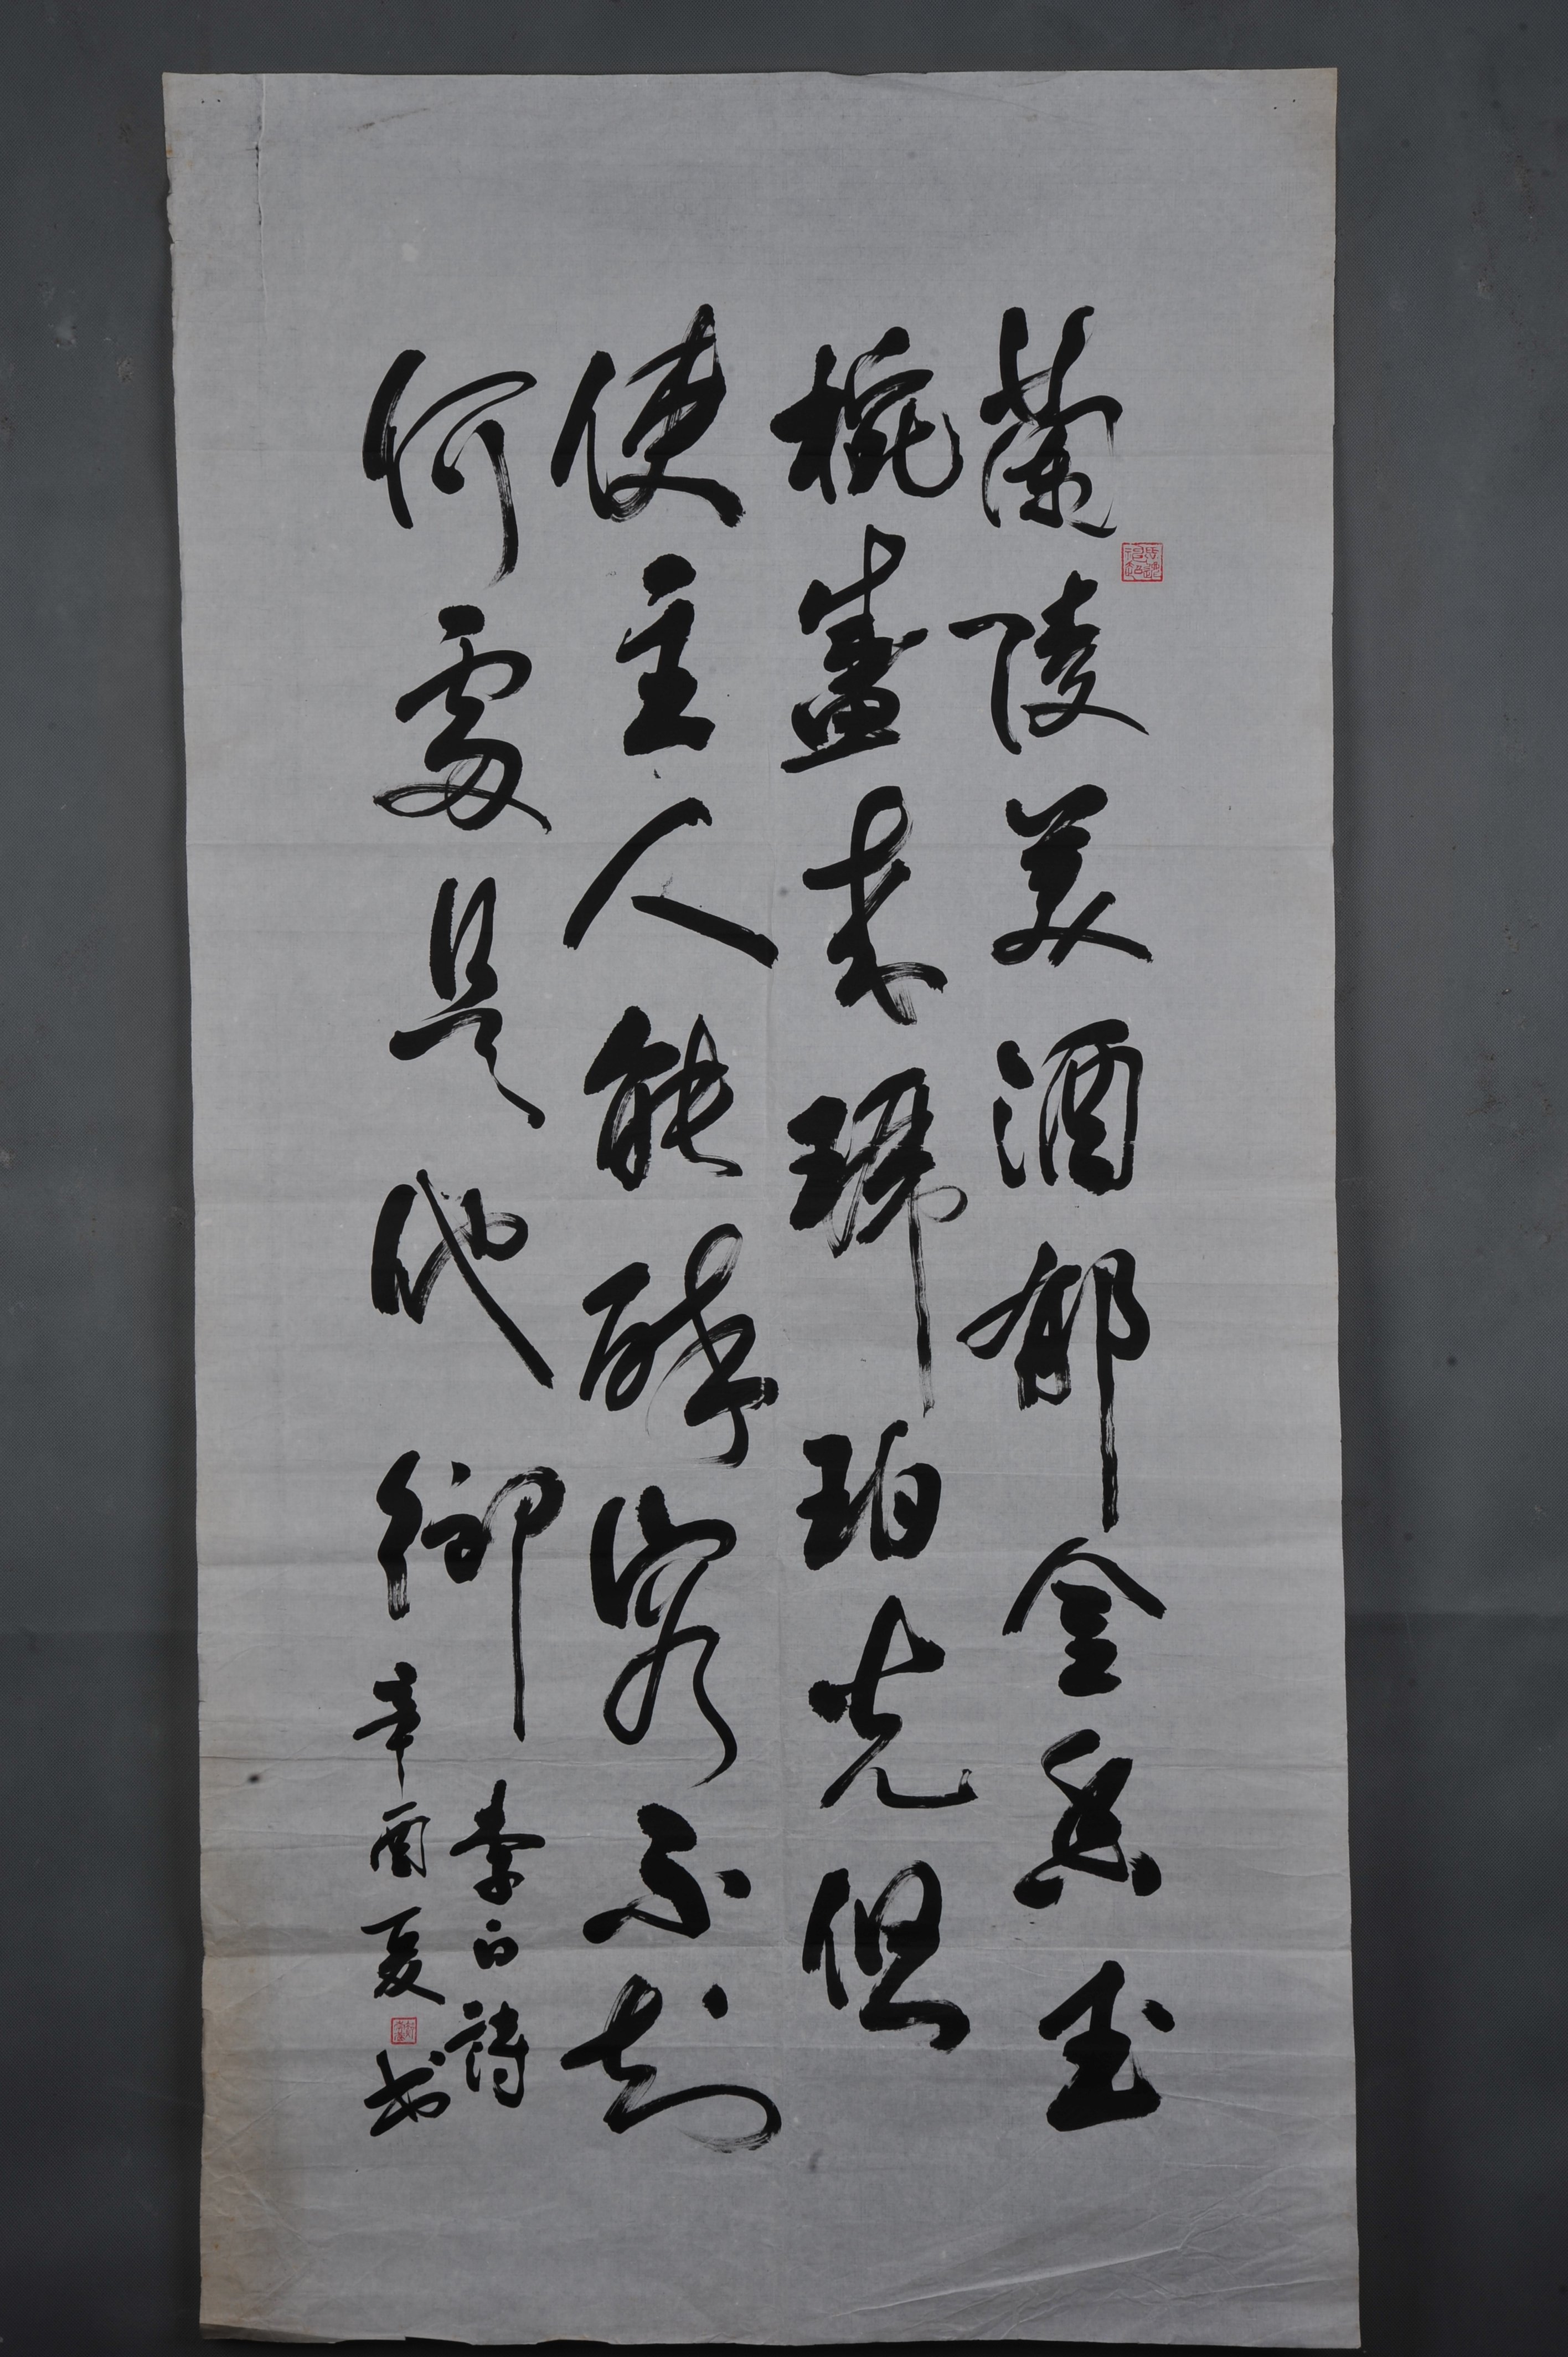 蘭陵美酒郁金香玉
椀盛来琥珀光但
使主人能醉客不知
何處是他鄉
李白詩
辛酉夏
书